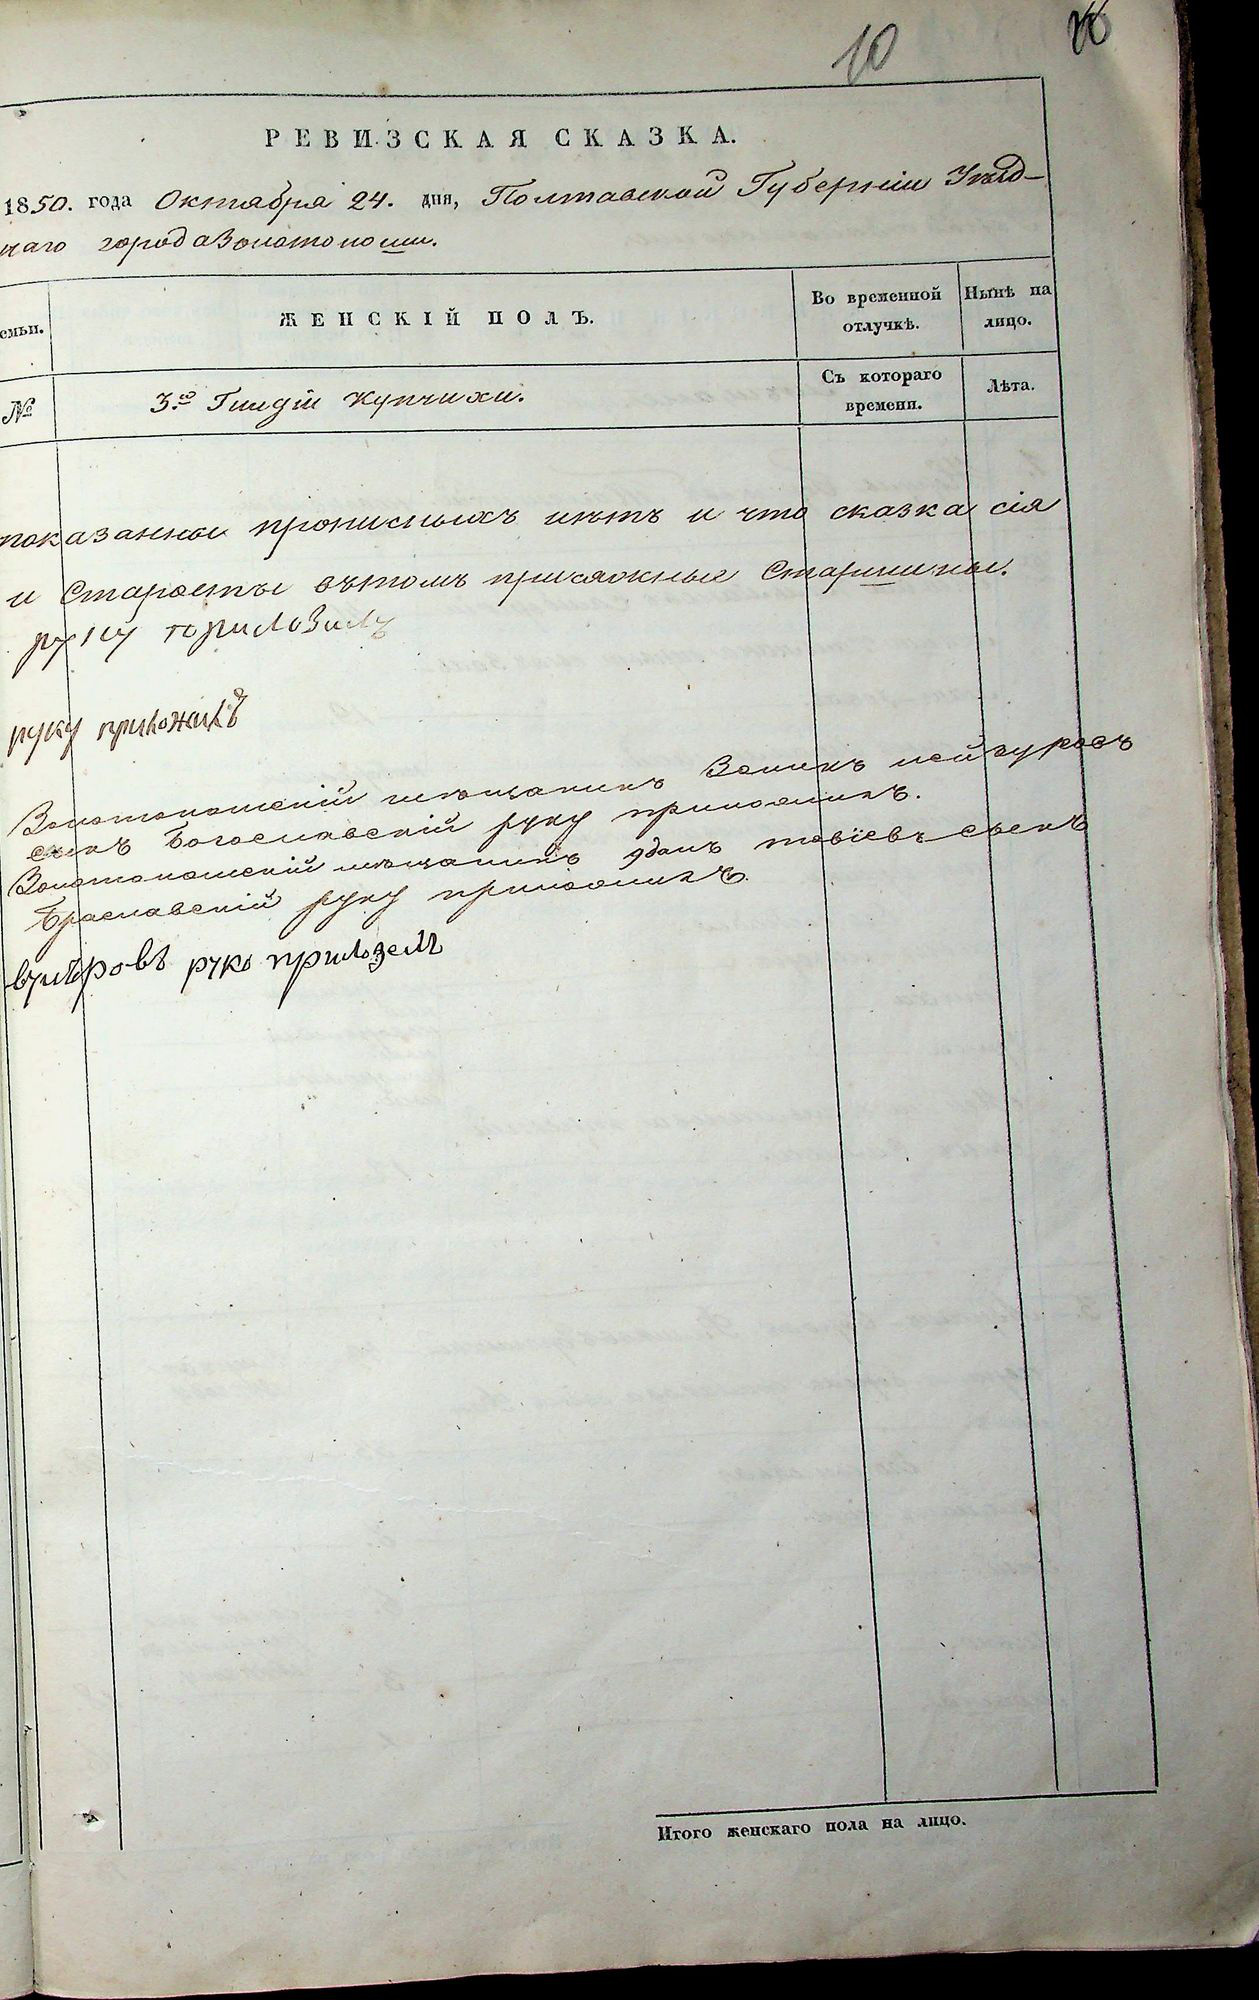 10
РЕВИЗСКАЯ СКАЗКА.
1850. года Октября 24. дня, Полтавской Губернiи Уѣзд-
наго города Золотоноши.
емьи.
ЖЕНСКІЙ ПОЛЪ.
Во временной отлучкѣ.
Нынѣ на лицо.
№
3.й Гильдiи Купчихи.
Съ котораго времени.
Лѣта.
показанное прописныхъ нѣтъ и что сказка сiя
и Старосты вѣтомъ присяжные Старшины.
руку
руку приложилъ
Золотоношскiй мещанинъ Зеликъ лейзуровъ
сынъ Богославскiй руку приложилъ.
Золотоношскiй мещанинъ товiевъ сынъ
Браславскiй руку приложилъ.
руко прилозелъ
Итого женскаго пола на лицо.